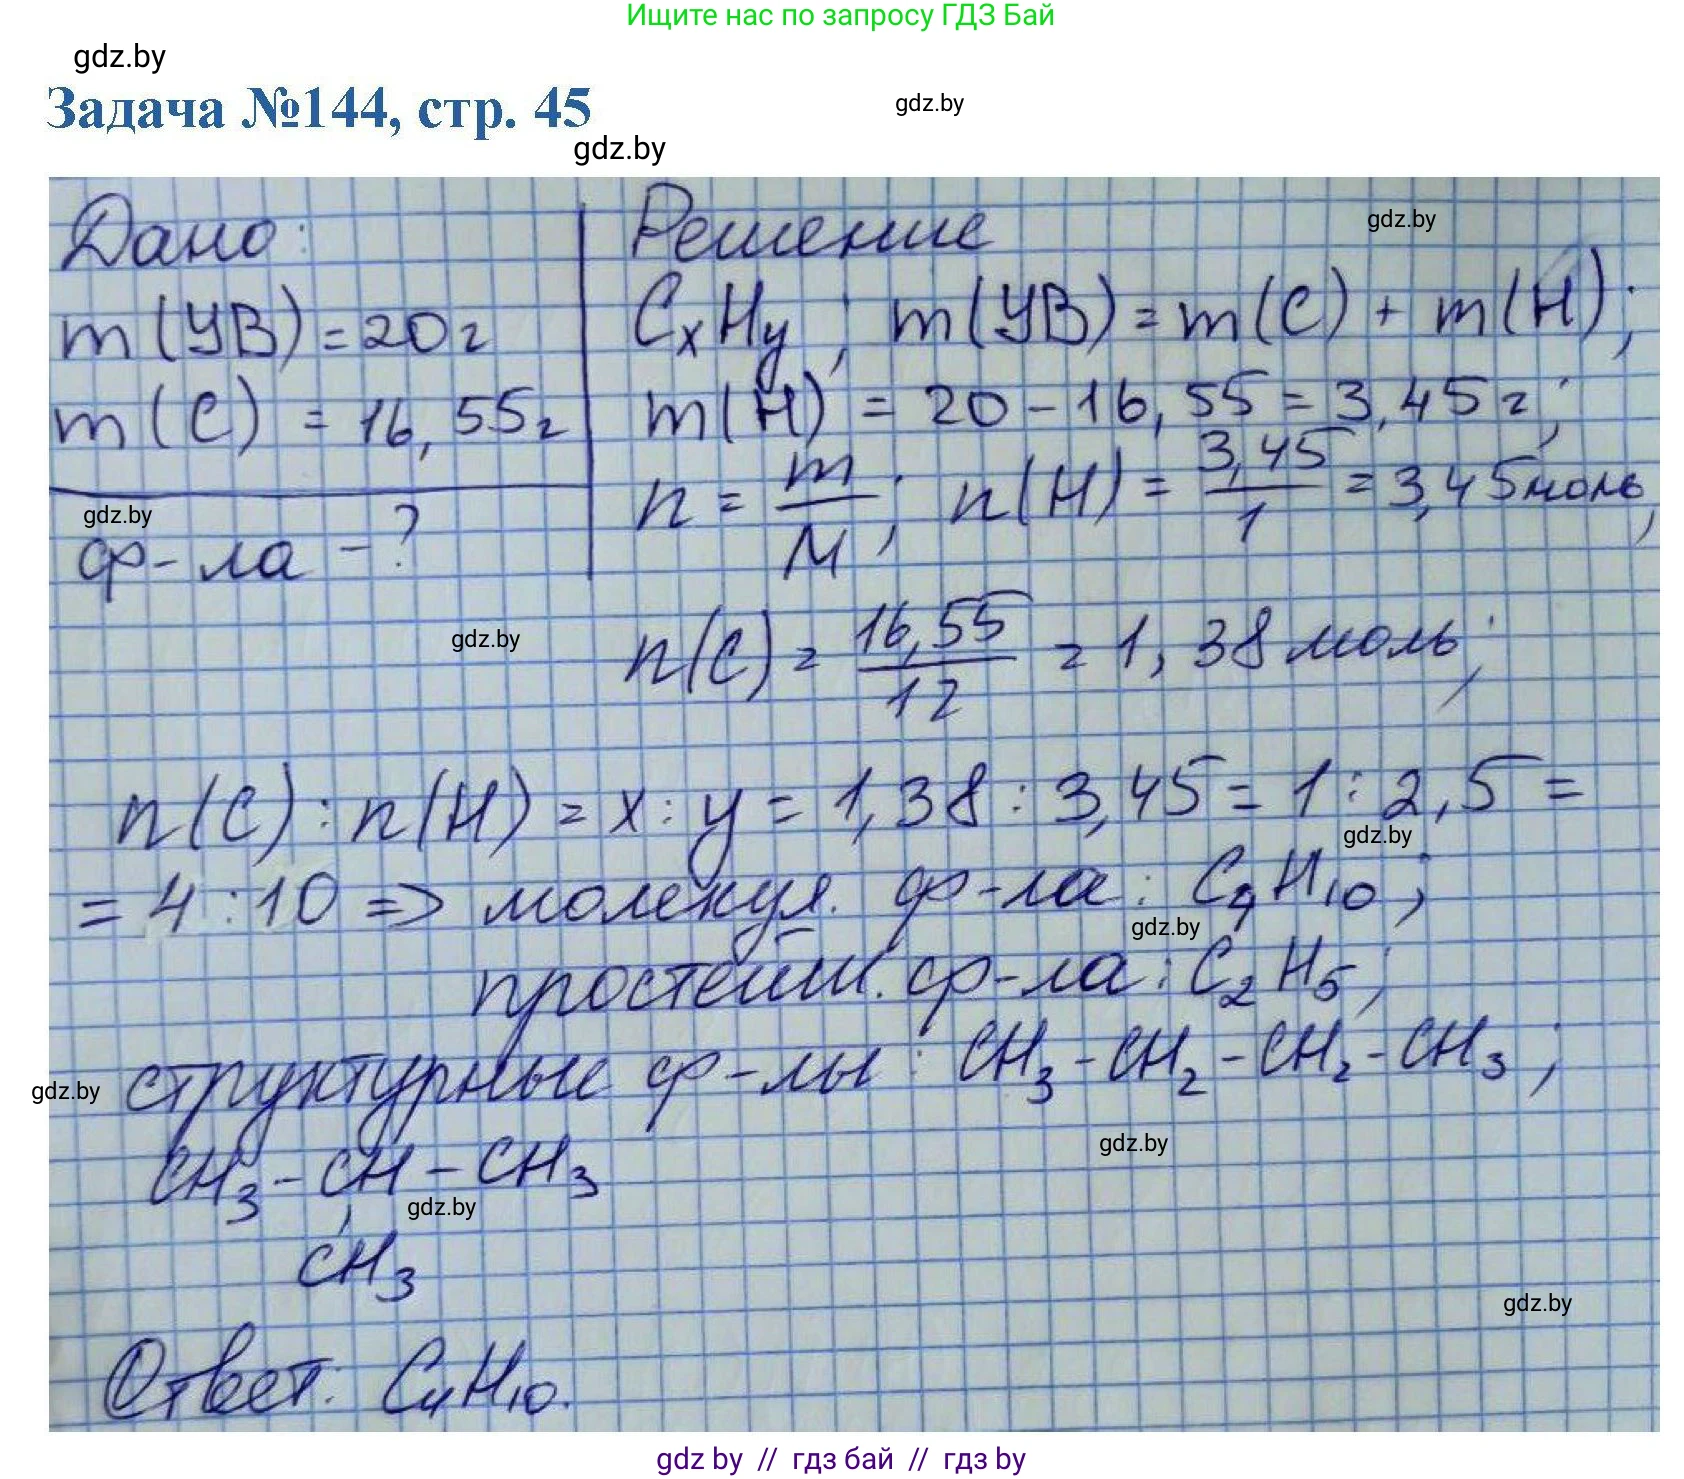 Ищите нас по запросу ГДЗ Бай
gdz.by
Задача №144, стр. 45
gdz.by
gdz.by
Дано:
m(УВ)=20г
m(C) = 16,55г
gdz.by
ф-ла -?
Решение
gdz.by
CxHy; m(УВ)=m(C) + m(H);
m(H) = 20-16,55=3,45г;
n = m/M; n(H) = 3,45/1 = 3,45моль,
gdz.by
n(C) = 16,55/12 = 1,38 моль;
n(C):n(H) = x:y = 1,38:3,45=1:2,5=
gdz.by
= 4:10 => молекул. ф-ла: C4H10;
gdz.by
простейш. ф-ла: C2H5;
gdz.by
структурные ф-лы: CH3-CH2-CH2-CH3;
gdz.by
CH3-CH-CH3
gdz.by
CH3
gdz.by
Ответ: C4H10.
gdz by // гдз бай // гдз by